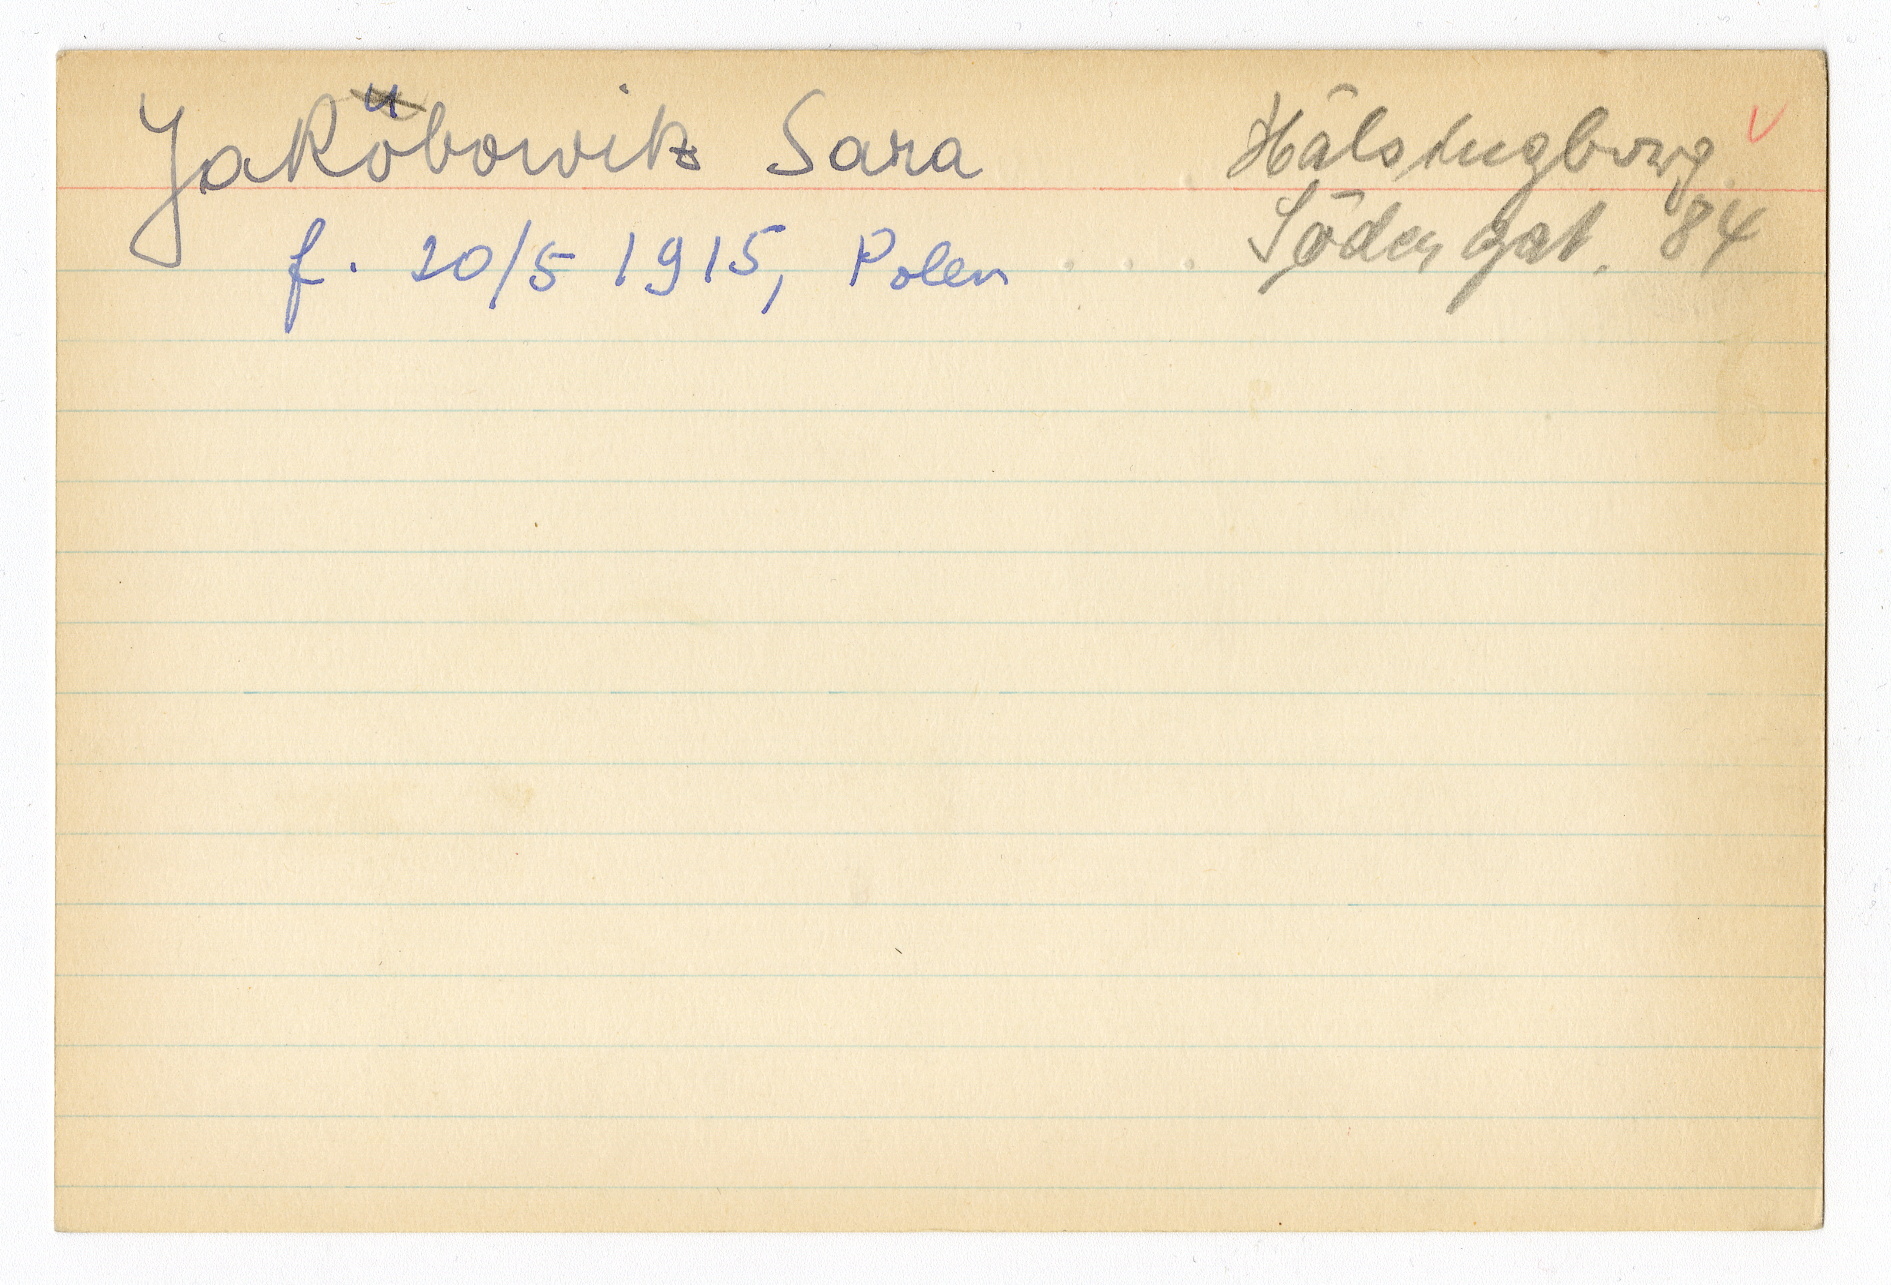 Jakobowitz Sara
Hälsingborg
f. 20/5 1915, Polen
Södergat. 84